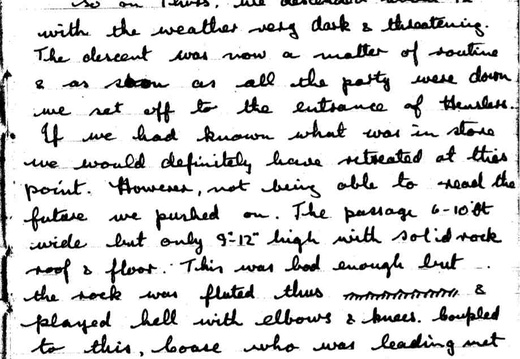 so on Thurs. we descended about 12
with the weather very dark & threatening.
The descent was now a matter of routine
& as soon as all the party were down
we set off to the entrance of Henslers.
If we had known what was in store
we would definitely have retreated at this
point. However, not being able to read the
future we pushed on. The passage 6-10 ft
wide but only 9"-12" high with solid rock
roof & floor. This was bad enough but
the rock was fluted thus &
played hell with elbows & knees. Coupled
to this, Coase who was leading met